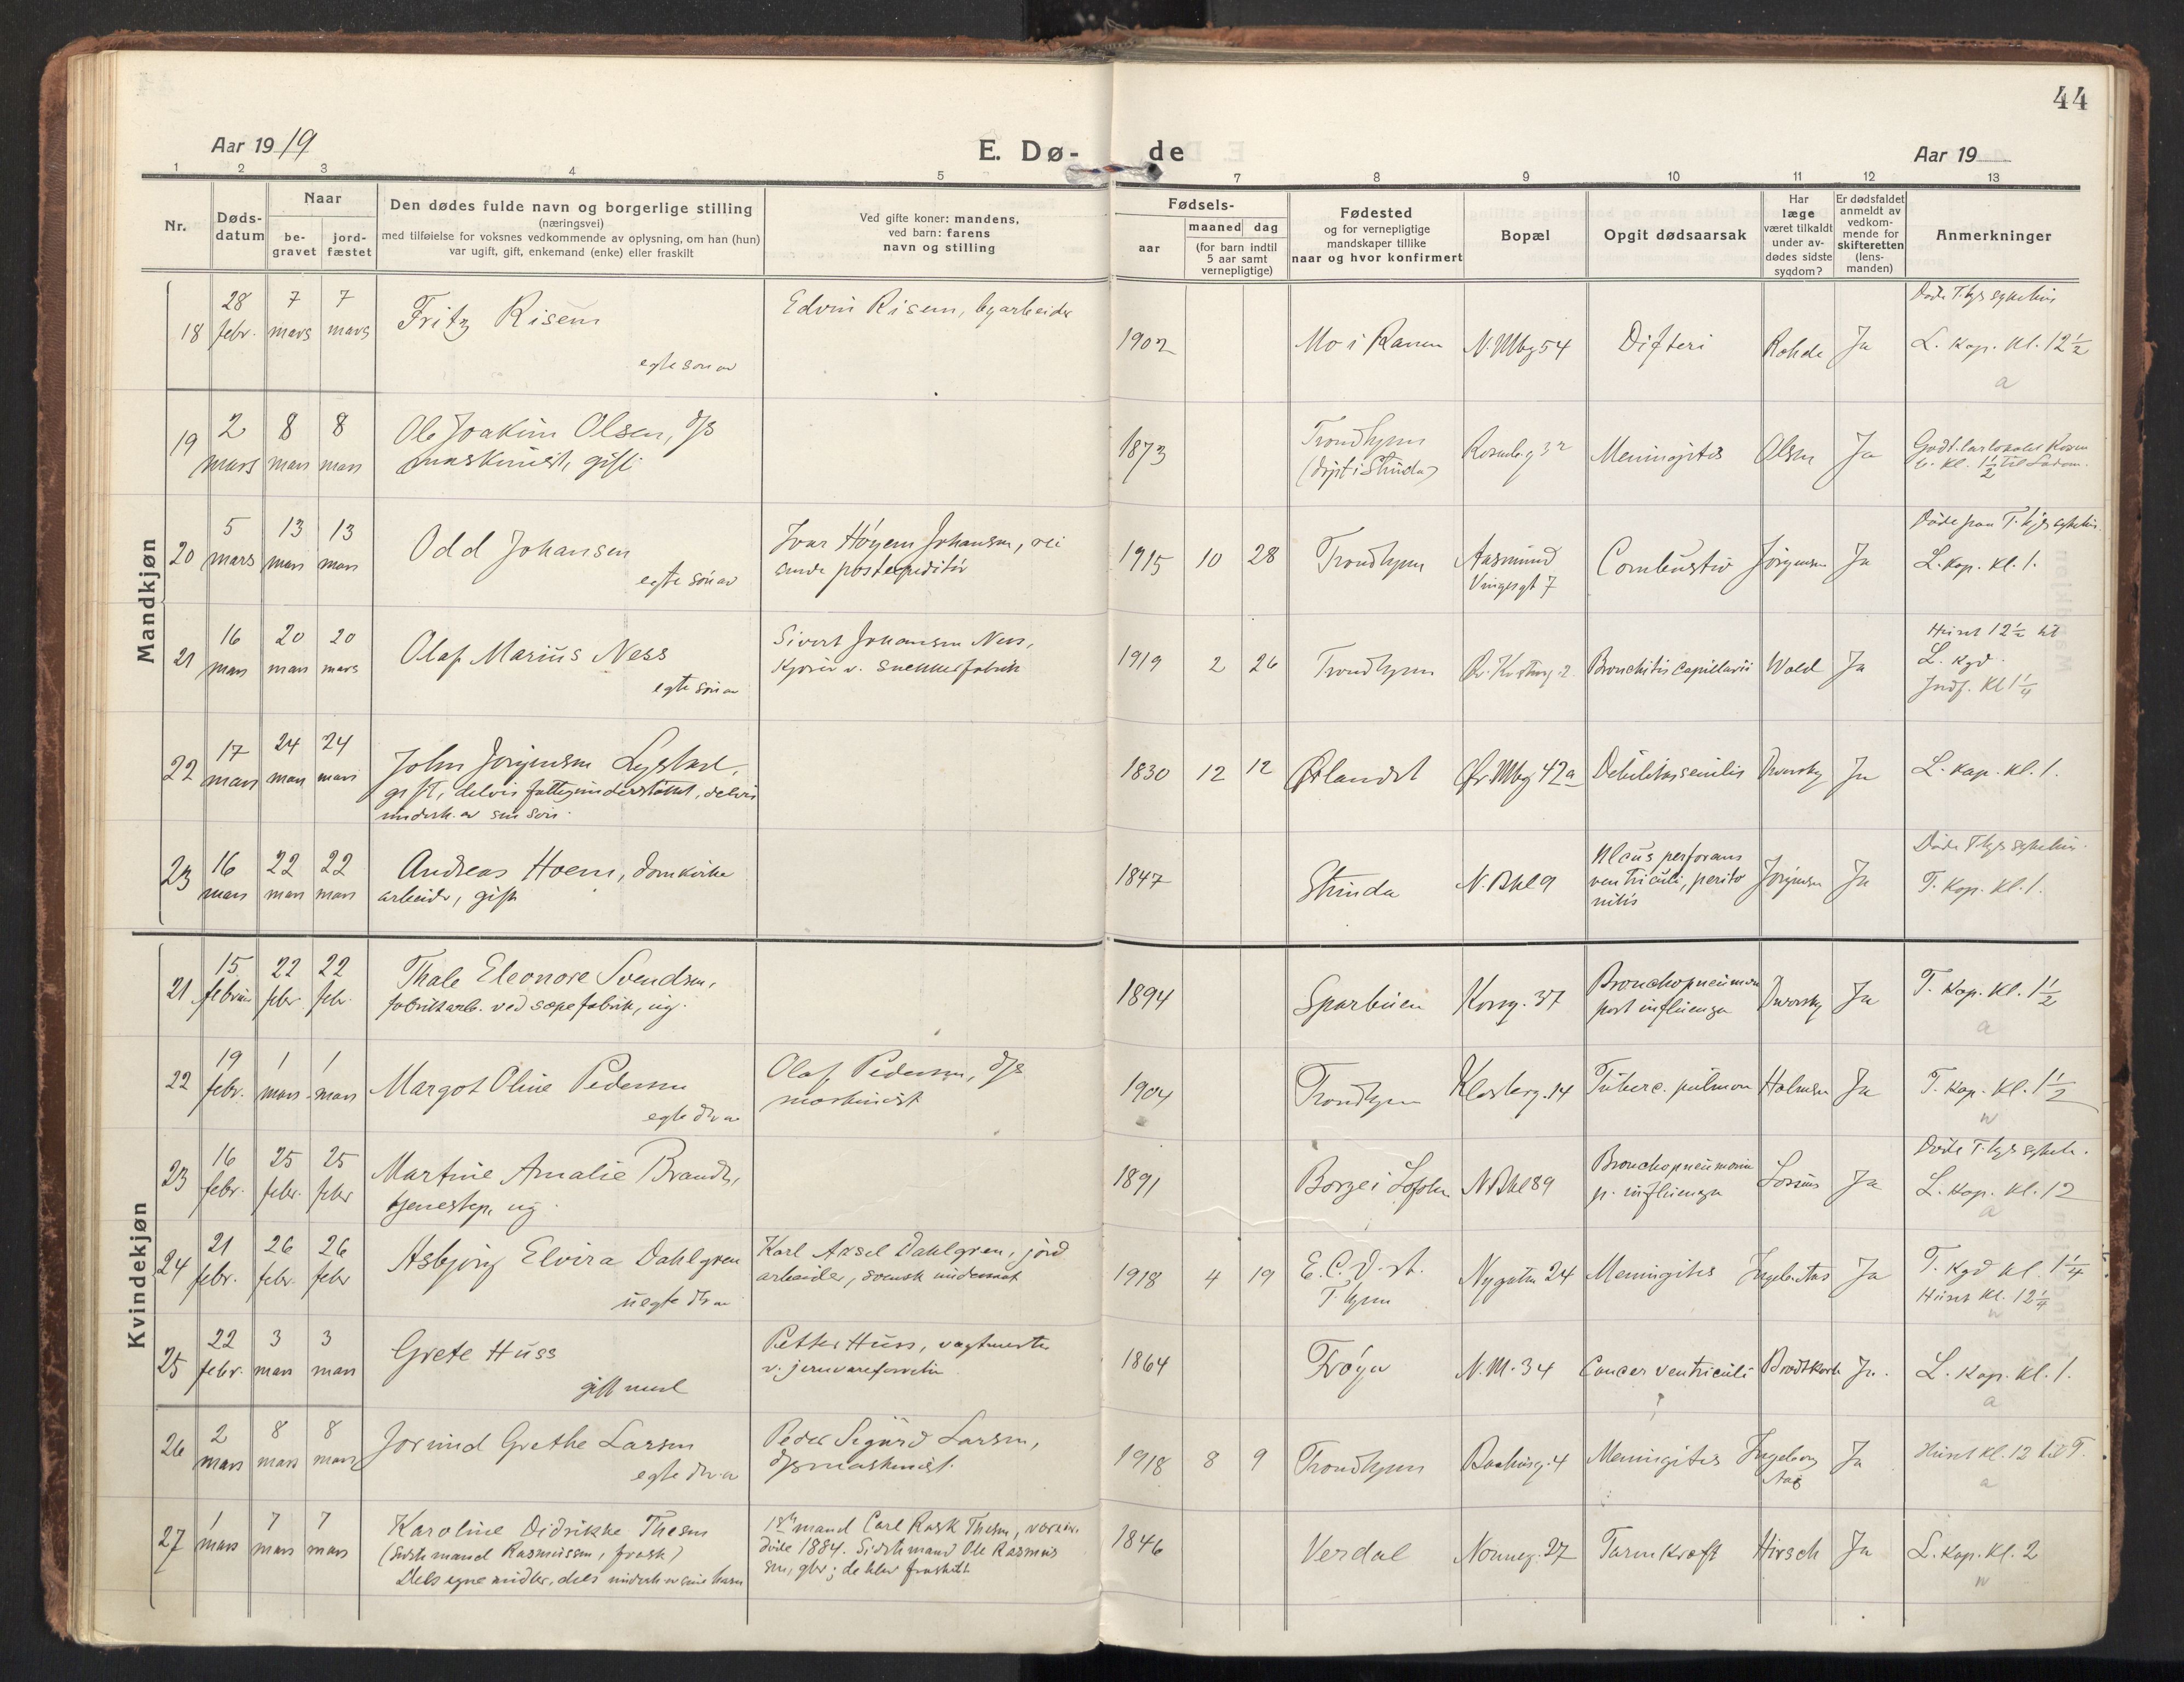 44
Aar 1919
E. Dø-
de
Aar 19
1 2 3 4 5 7 8 9 10 11 12 13
Nr.
Døds-
datum
Naar
be-
gravet
jord-
fæstet
Den dødes fulde navn og borgerlige stilling
(næringsvei)
med tilføielse for voksnes vedkommende av oplysning, om han (hun)
var ugift, gift, enkemand (enke) eller fraskilt
Ved gifte koner: mandens,
ved barn: farens
navn og stilling
Fødsels-
aar
maaned dag
(for barn indtil
5 aar samt
vernepligtige)
Fødested
og for vernepligtige
mandskaper tillike
naar og hvor konfirmert
Bopæl
Opgit dødsaarsak
Har
læge
været tilkaldt
under av-
dødes sidste
sygdom?
Er dødsfaldet
anmeldt av
vedkom-
mende for
skifteretten
(lens-
manden)
Anmerkninger
Mandkjøn
18
28 febr.
7 mars
7 mars
Fritz Risem
egte søn av
Edvin Risem, byarbeider
1902
Mo i Ranen
N. Mbg 54
Difteri
Rohde
Ja
Døde T.hjs sykehus
L. Kap. Kl. 12 1/2
a
19
2 mars
8 mars
8 mars
Ole Joakim Olsen, d/s
maskinist, gift
1873
Trondhjem
(døpt i Strinda)
Rosenb.g 32
Meningitis
Olsen
Ja
20
5 mars
13 mars
13 mars
Odd Johansen
egte søn av
Ivar Høyem Johansen, rei
sende postexpeditør
1915 10 28
Trondhjem
Aasmund
Vingesgt 7
Combustio
Jørgensen
Ja
Døde paa T.hjs sykehus.
L. Kap. Kl. 1.
21
16 mars
20 mars
20 mars
Olaf Marius Ness
egte søn av
Sivert Johansen Ness,
Kjører v. snekkerfabrik
1919 2 26
Trondhjem
Bronchitis capillaris
Wold
Ja
Huset 12 1/2 til
L. Kgd.
Indf. Kl 1 1/4
22
17 mars
24 mars
24 mars
John Jørgensen Lystad,
gift, delvis fattigunderstøttet, delvis
underh. av sin søn.
1830 12 12
Ørlandet
Øv. Mbg 42a
Debilitas senilis
Dworsky
Ja
L. Kap. Kl. 1.
23
16 mars
22 mars
22 mars
Andreas Hoem, domkirke
arbeider, gift
1847
Strinda
N. Bkl 9
Ulcus perforans
ventriculi, perito
nitis
Jørgensen
Ja
Døde T.hjs sykehus.
T. Kap. Kl. 1.
Kvindekjøn
21
15 februar
22 febr
22 febr.
Thale Eleonore Svendsen,
fabrikarb. ved sæpefabrik, ug.
1894
Sparbuen
Kong. 37
Bronchopneumoni
post influenza
Dworsky
Ja
T. Kap. Kl. 1 1/2
a
22
19 febr.
1 mars
1 mars
Margot Oline Pedersen
egte dtr av
Olaf Pedersen, d/s
maskinist
1904
Trondhjem
Klosterg. 14
Tuberc. pulmon
Holmsen
Ja
T. Kap. Kl. 1 1/2
w
23
16 febr.
25 febr.
25 febr
Martine Amalie Brandt,
tjenestep, ug.
1891
Borge i Lofoten
N Bkl 89
Bronchopneumonia
p. influenza
Lossius
Ja
Døde T.hjs sykeh.
L. Kap. Kl. 12
a
24
21 febr.
26 febr.
26 febr
Asbjørg Elvira Dahlgren
uegte dtr av
Karl Axsel Dahlgren, jord
arbeider, svensk undersaat
1918 4 19
E. C. D. st.
T.hjem
Nygaten 24
Meningitis
Ingeb. Aas
Ja
T. Kgd Kl. 1 1/4
Huset Kl. 12 1/4
w
25
22 febr.
3 mars
3 mars
Grete Huss
gift med
Petter Huss, vagtmester
v. jernvareforretn.
1864
Frøya
N. M. 34
Cancer ventriculi
Brodtkorb
Ja.
L. Kap. Kl. 1.
a
26
2 mars
8 mars
8 mars
Jorund Grethe Larsen
egte dtr av
Peder Sigurd Larsen,
d/s maskinist.
1918 8 9
Trondhjem
Bakkeg. 4
Meningitis
Ingeborg
Aas
Ja
Huset Kl. 12 til T.
a
27
1 mars
7 mars
7 mars
Karoline Didrikke Thesen
(sidste mand Rasmussen, frask)
Dels egne midler, dels underh av sine barn
1ste mand Carl Rosk Thesen,
døde 1884. Sidste mand Ole Rasmus
sen, gbr; de blev fraskilt
1846
Verdal
Nonneg. 27
Tarmkræft
Hirsch
Ja
L. Kap. Kl. 2
w